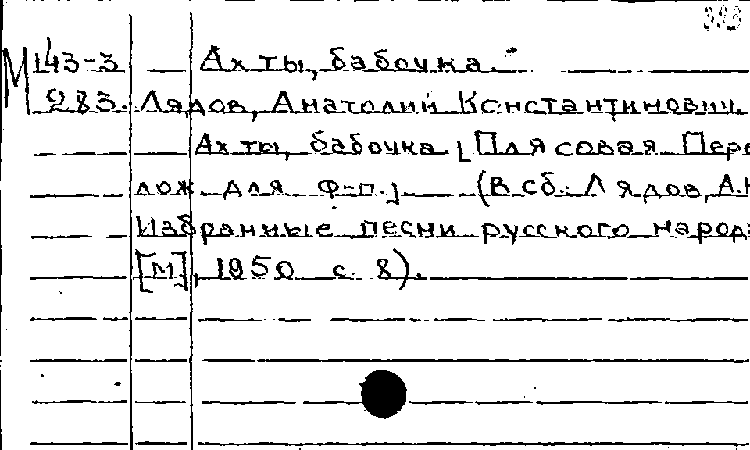 М 143-3 Ах ты, бабочка."
283. Лядов, Анатолий Константинович.
Ах ты, бабочка. [Плясовая. Пере
лож. для ф-п.]. (В сб.: Лядов, А.К
Избранные песни русского народа
[М], 1950 с. 8).